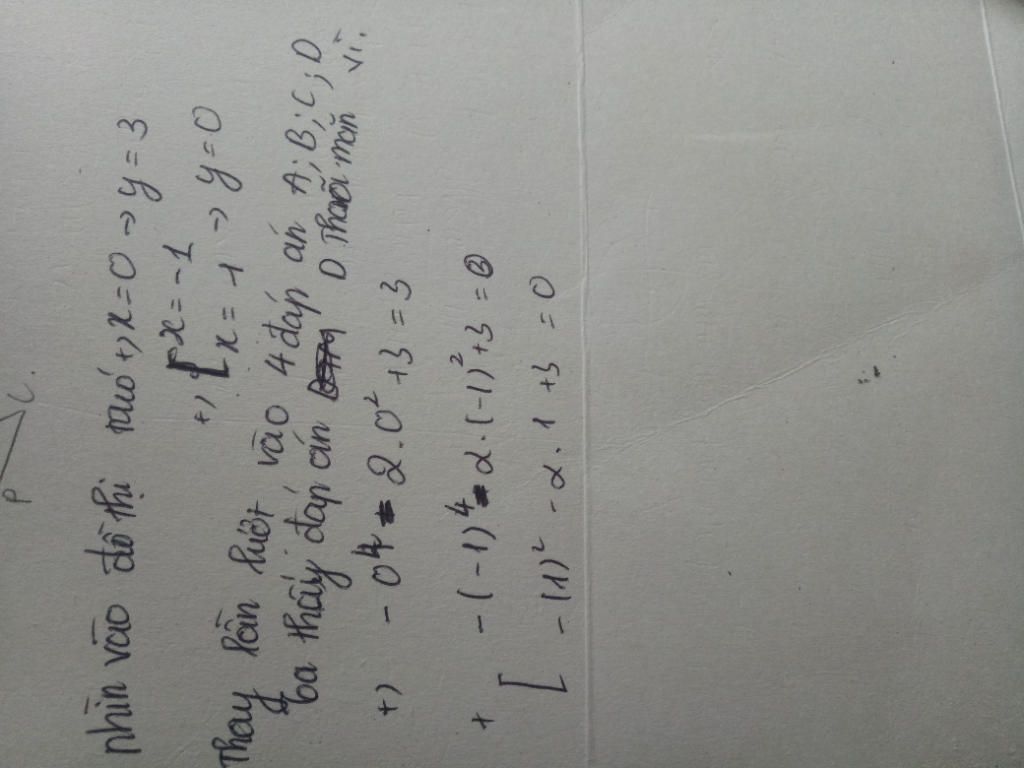 P C.
nhìn vào đồ thị ta có +, x = 0 -> y = 3
+, [ x = -1
x = 1 -> y = 0
Thay lần lượt vào 4 đáp án A; B; C; D
ta thấy đáp án D Thoả mãn vì.
+) - 0⁴ - 2 . 0² + 3 = 3
+ [ - (-1)⁴ - 2 . (-1)² + 3 = 0
- (1)² - 2 . 1 + 3 = 0